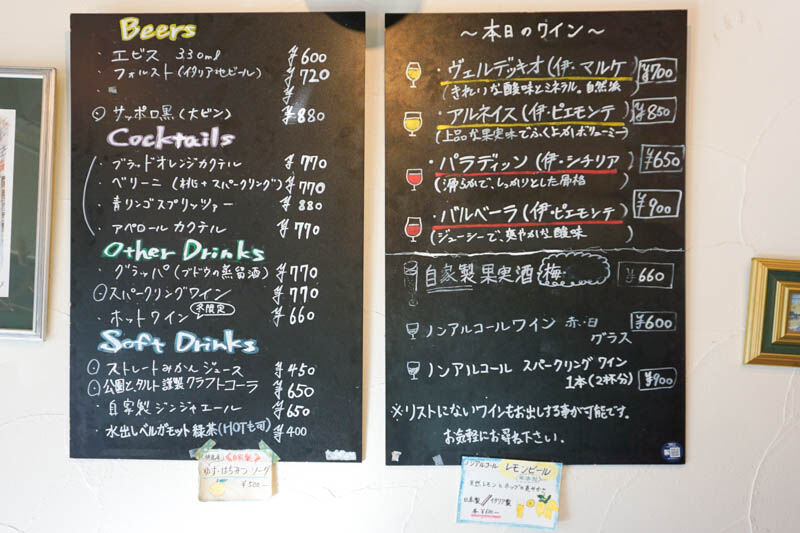 Beers
・エビス 330ml ¥600
・フォルスト(イタリア地ビール) ¥720
・サッポロ黒(大ビン) ¥880
Cocktails
・ブラッドオレンジカクテル ¥770
・ベリーニ (桃+スパークリング) ¥770
・青リンゴスプリッツァー ¥880
・アペロール カクテル ¥770
Other Drinks
・グラッパ(ブドウの蒸留酒) ¥770
・スパークリングワイン ¥770
・ホットワイン 冬限定 ¥660
Soft Drinks
・ストレートみかんジュース ¥450
・公園と、タルト謹製クラフトコーラ ¥650
・自家製ジンジャエール ¥650
・水出しベルガモット緑茶(HOTも可) ¥400
ゆず・はちみつソーダ
¥500-
〜本日のワイン〜
・ヴェルデッキオ(伊・マルケ ¥700
(きれいな酸味とミネラル。自然派
・アルネイス(伊・ピエモンテ ¥850
(上品な果実味でふくよか。ボリューミー
・パラディッソ(伊・シチリア ¥650
(滑らかで、しっかりとした骨格
・バルベーラ(伊・ピエモンテ ¥900
(ジューシーで、爽やかな酸味
自家製果実酒 梅 ¥660
ノンアルコールワイン 赤・白 ¥600
グラス
ノンアルコール スパークリング ワイン
1本(2杯分) ¥900
※リストにないワインもお出しする事が可能です。
お気軽にお尋ね下さい。
ノンアルコール レモンビール
天然レモンとホップの爽やかさ
日本製 イタリア製